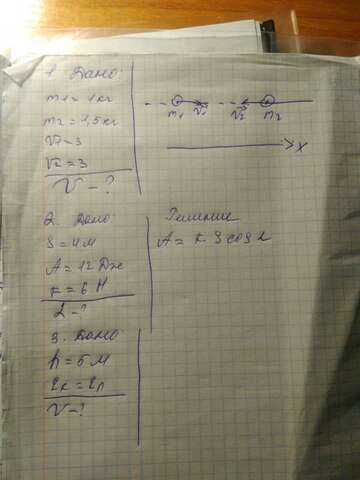 1. Дано:
m1 = 1 кг
m2 = 1,5 кг
V1 = 3
V2 = 3
V - ?
m1 V1 V2 m2
x
2. Дано:
S = 4 м
A = 12 Дж
F = 6 Н
L - ?
Решение
A = F S cos L
3. Дано:
h = 5 м
Eк = Eп
V - ?